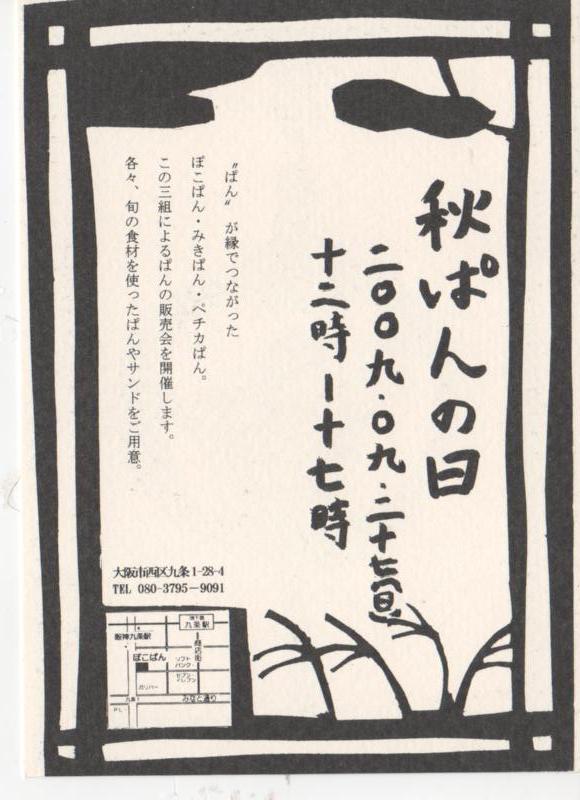 秋ぱんの日
二〇〇九.〇九.二十七(日)
十二時ー十七時
〝ぱん〟が縁でつながった
ぽこぱん・みきぱん・ペチカぱん。
この三組によるぱんの販売会を開催します。
各々、旬の食材を使ったぱんやサンドをご用意。
大阪市西区九条1-28-4
TEL 080-3795-9091
地下鉄
九条駅
阪神九条駅
商店街
ぽこぱん
ソフト
バンク
セブン
イレブン
ガリバー
九条
みなと通り